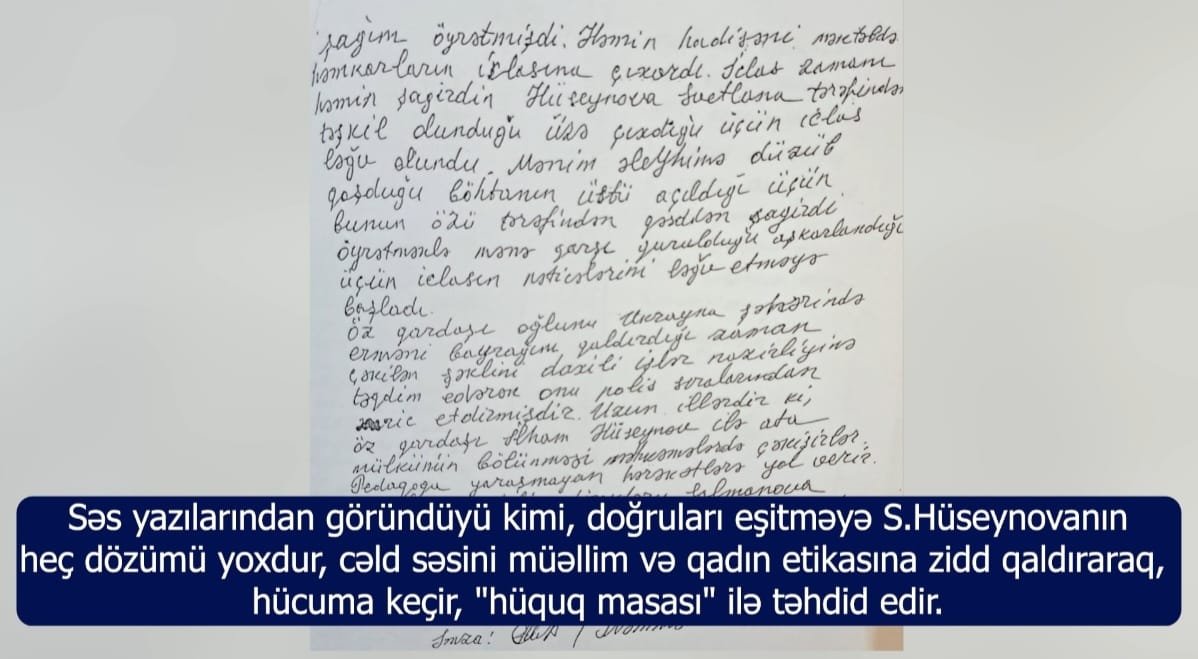 şagim öyrətmişdi. Həmin hadisəni məktəbdə
həmkarların iclasına çıxardı. İclas zamanı
həmin şagirdin Hüseynova Svetlana tərəfindən
təşkil olunduğu üzə çıxdığı üçün iclas
ləğv olundu. Mənim əleyhimə düzüb
qoşduğu böhtanın üstü açıldığı üçün
bunun özü tərəfindən qəsdən şagirdi
öyrətməklə mənə qarşı qurulduğu aşkarlandığı
üçün iclasın nəticələrini ləğv etməyə
başladı.
öz qardaşı oğlunu Ukrayna şəhərində
erməni bayrağını qaldırdığı zaman
çəkilən şəklini daxili işlər nazirliyinə
təqdim edərək onu polis sıralarından
xaric etdirmişdir. Uzun illərdir ki,
öz qardaşı İlham Hüseynov ilə ata
mülkünün bölünməsi məhkəmələrdə çəkişirlər.
Pedaqoqa yaraşmayan hərəkətlərə yol verir.
Səs yazılarından göründüyü kimi, doğruları eşitməyə S.Hüseynovanın
heç dözümü yoxdur, cəld səsini müəllim və qadın etikasına zidd qaldıraraq,
hücuma keçir, "hüquq masası" ilə təhdid edir.
İmza: